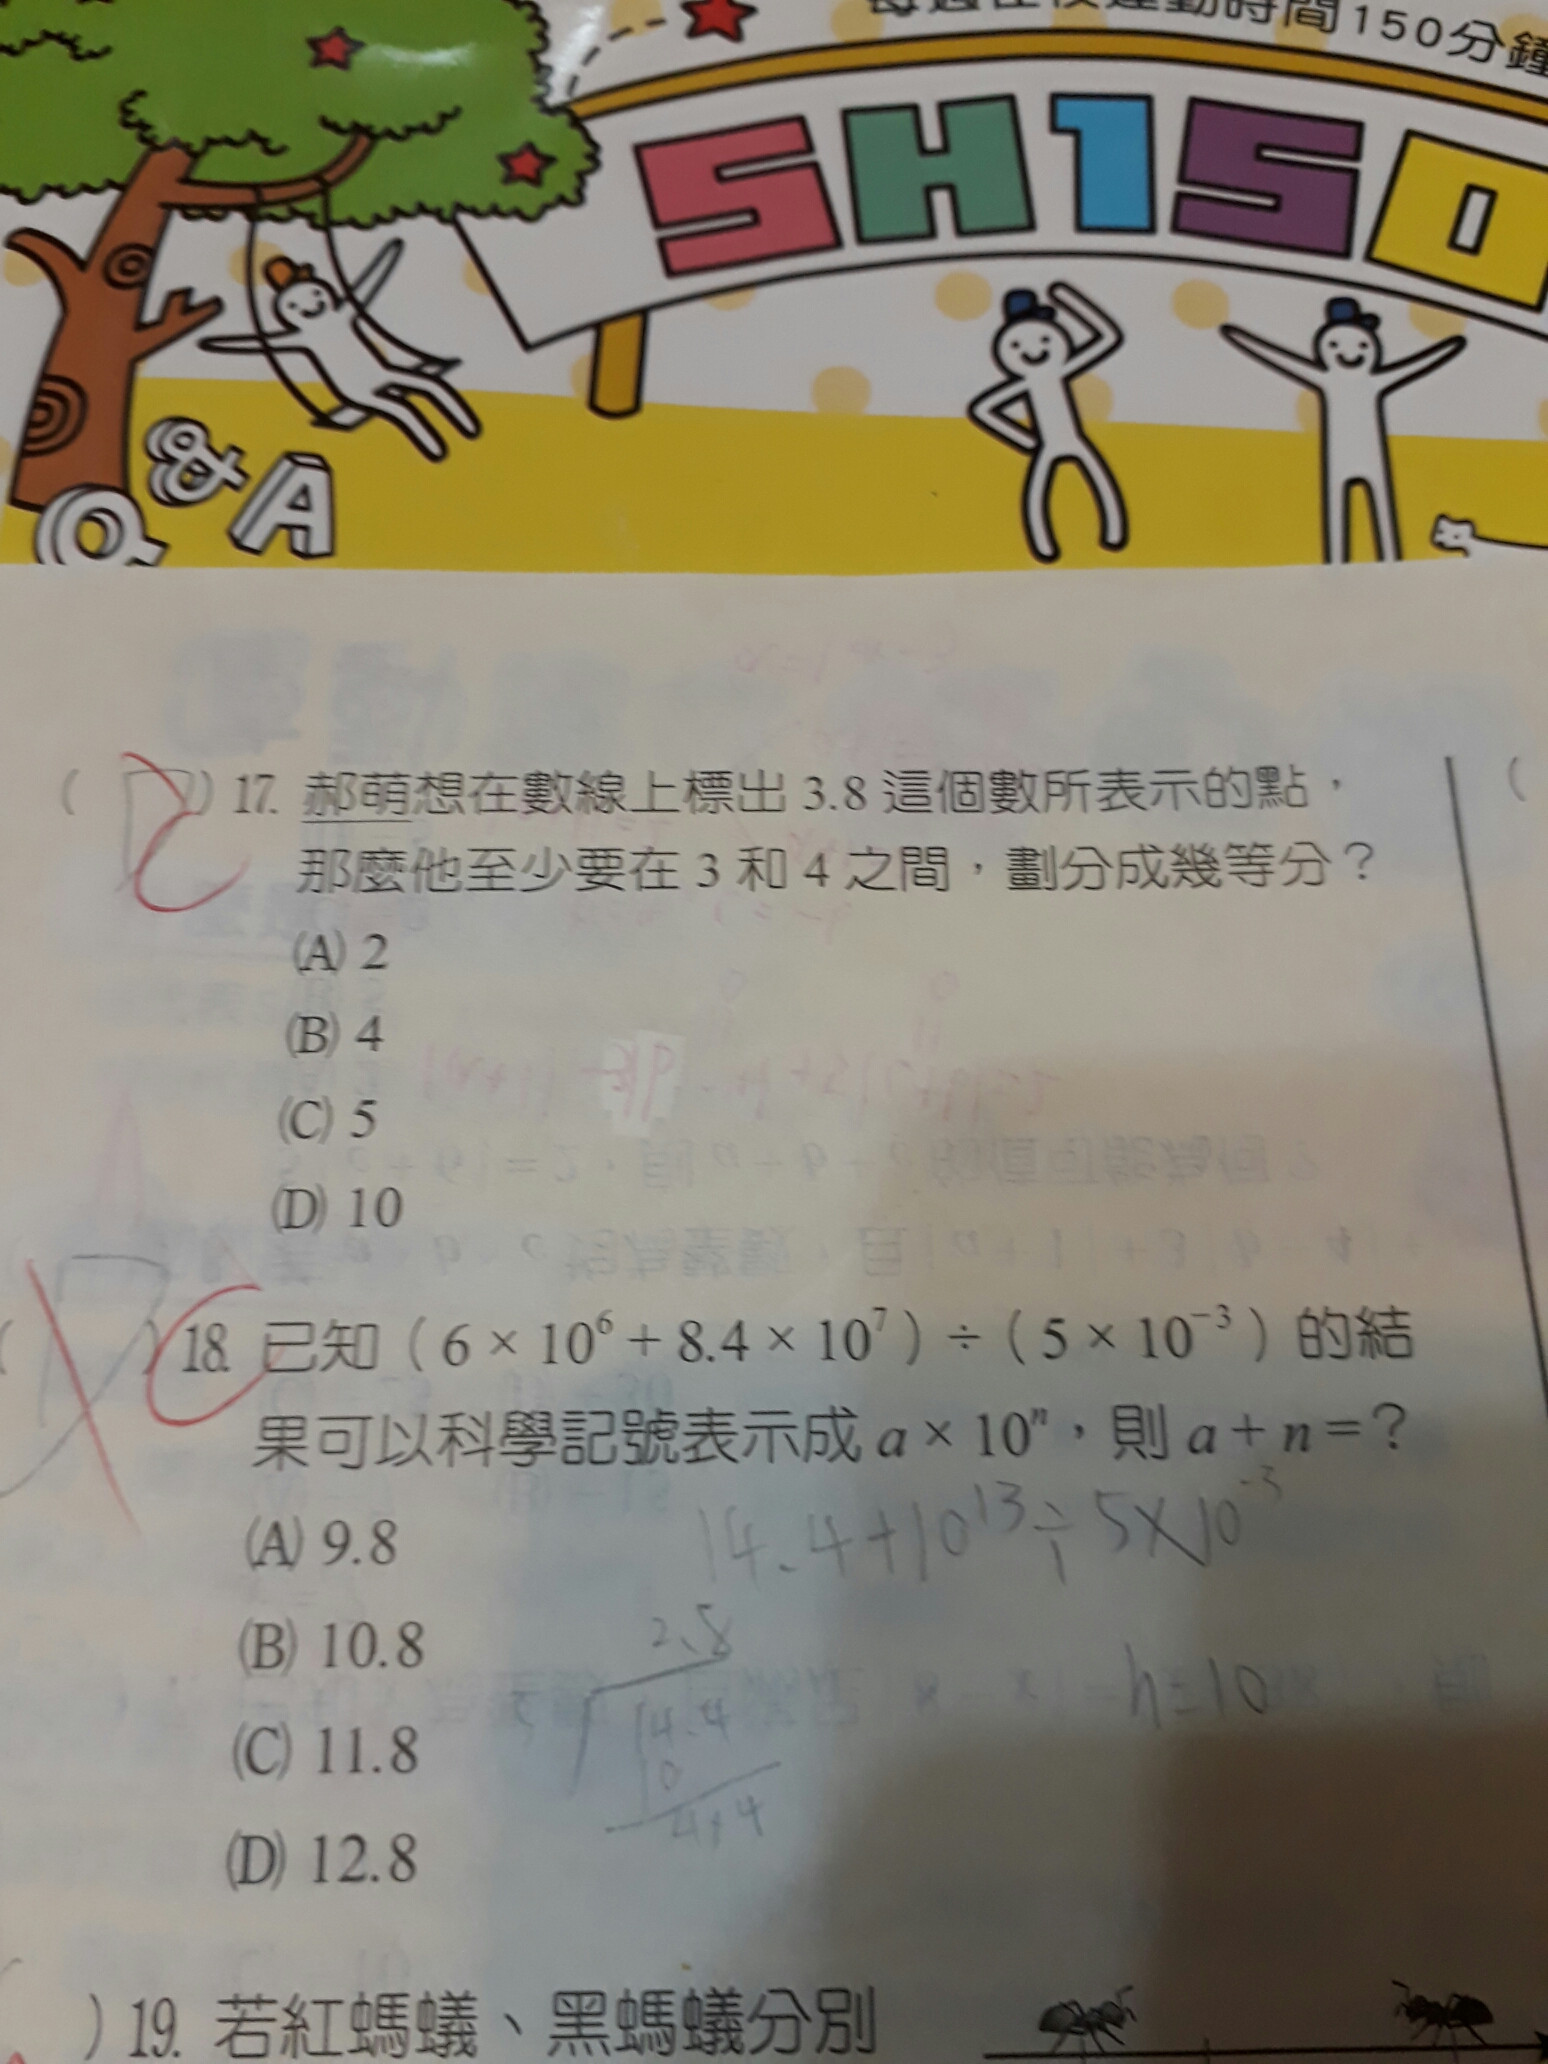 動時間150分鐘
SH150
Q&A
( C ) 17. 郝萌想在數線上標出 3.8 這個數所表示的點，
那麼他至少要在 3 和 4 之間，劃分成幾等分？
(A) 2
(B) 4
(C) 5
(D) 10
( C ) 18. 已知（6 × 10⁶ + 8.4 × 10⁷）÷（5 × 10⁻³）的結
果可以科學記號表示成 a × 10ⁿ，則 a + n = ?
14.4+10¹³÷5×10⁻³
(A) 9.8
2.8
(B) 10.8
n=10
5 14.4
(C) 11.8
10
4.4
(D) 12.8
) 19. 若紅螞蟻、黑螞蟻分別